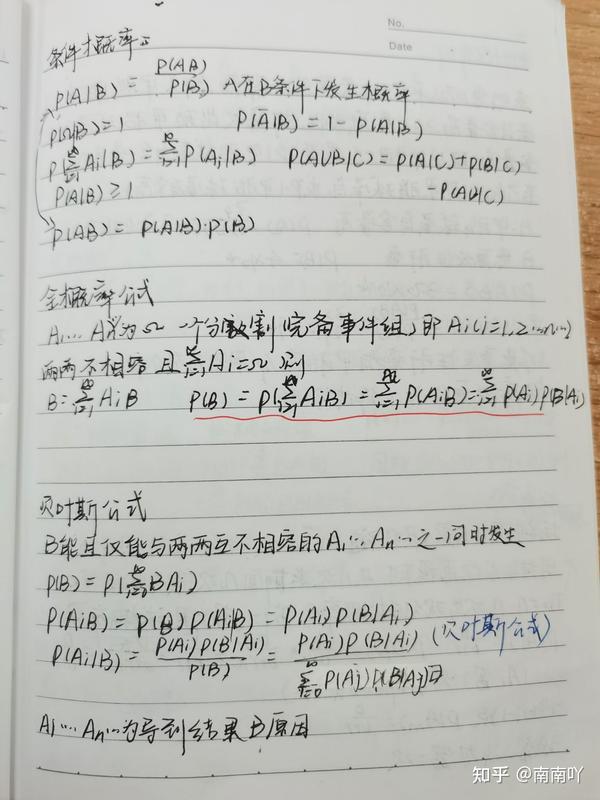 No.
Date
条件概率
P(A|B) = P(AB)/P(B) A在B条件下发生概率
P(Ω|B)=1 P(Ā|B)=1-P(A|B)
P(∑Ai|B)=∑P(Ai|B) P(A∪B|C)=P(A|C)+P(B|C)
P(A|B)≥1
P(AB)=P(A|B)·P(B)
全概率公式
A1…An…为Ω一个分割(完备事件组),即Ai(i=1,2…n…)
两两不相容且∑Ai=Ω则
B=∑AiB P(B)=P(∑AiB)=∑P(AiB)=∑P(Ai)P(B|Ai)
贝叶斯公式
B能且仅能与两两互不相容的A1…An…之一同时发生
P(B)=P(∑BAi)
P(AiB)=P(B)P(Ai|B)=P(Ai)P(B|Ai)
P(Ai|B)=P(Ai)P(B|Ai)/P(B)=P(Ai)P(B|Ai)/∑P(Aj)P(B|Aj) (贝叶斯公式)
A1…An…为导到结果B原因
知乎 @南南吖